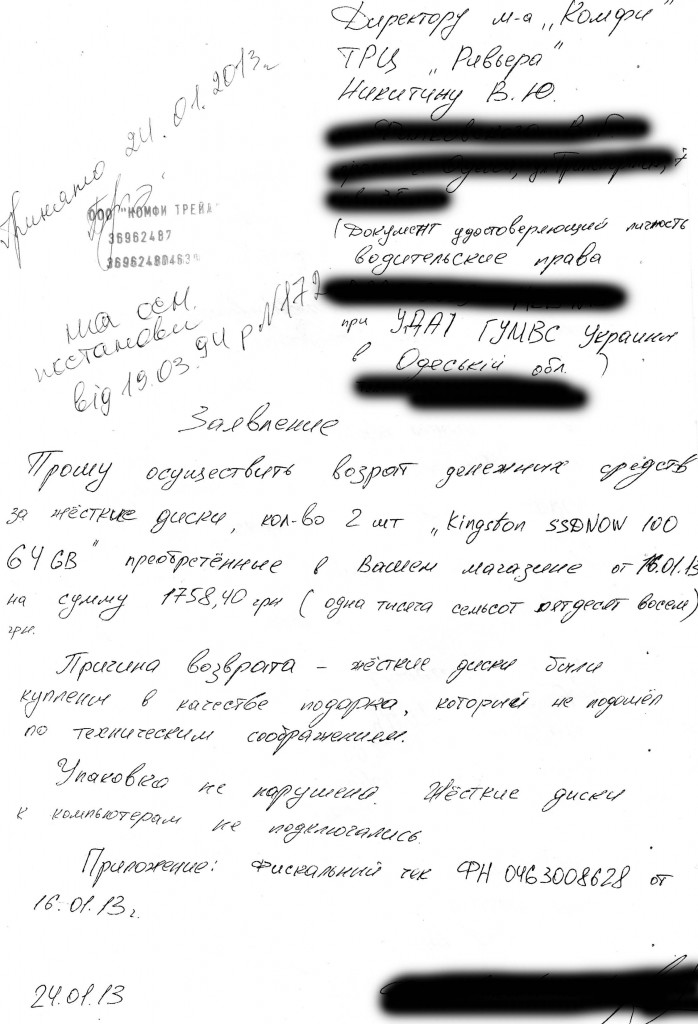 Директору м-а „Комфи"
ТРЦ „Ривьера"
Никитину В.Ю.
(Документ удостоверяющий личность
водительские права
при УДАІ ГУМВС Украины
в Одеській обл.)
Принято 24.01.2013г.
ООО "КОМФИ ТРЕЙД"
36962487
36962480463
постанови
від 19.03.94 р №172
Заявление
Прошу осуществить возрат денежных средств
за жёсткие диски, кол-во 2 шт „Kingston SSDNOW 100
64GB" преобретённые в Вашем магазине от 16.01.13
на сумму 1758,40 грн (одна тисяча семьсот пятдесят восем)
грн.
Причина возврата – жёсткие диски были
куплены в качестве подарка, который не подошёл
по техническим соображением.
Упаковка не нарушена. Жёсткие диски
к компьютерам не подключались.
Приложение: Фискальный чек ФН 0463008628 от
16.01.13г.
24.01.13